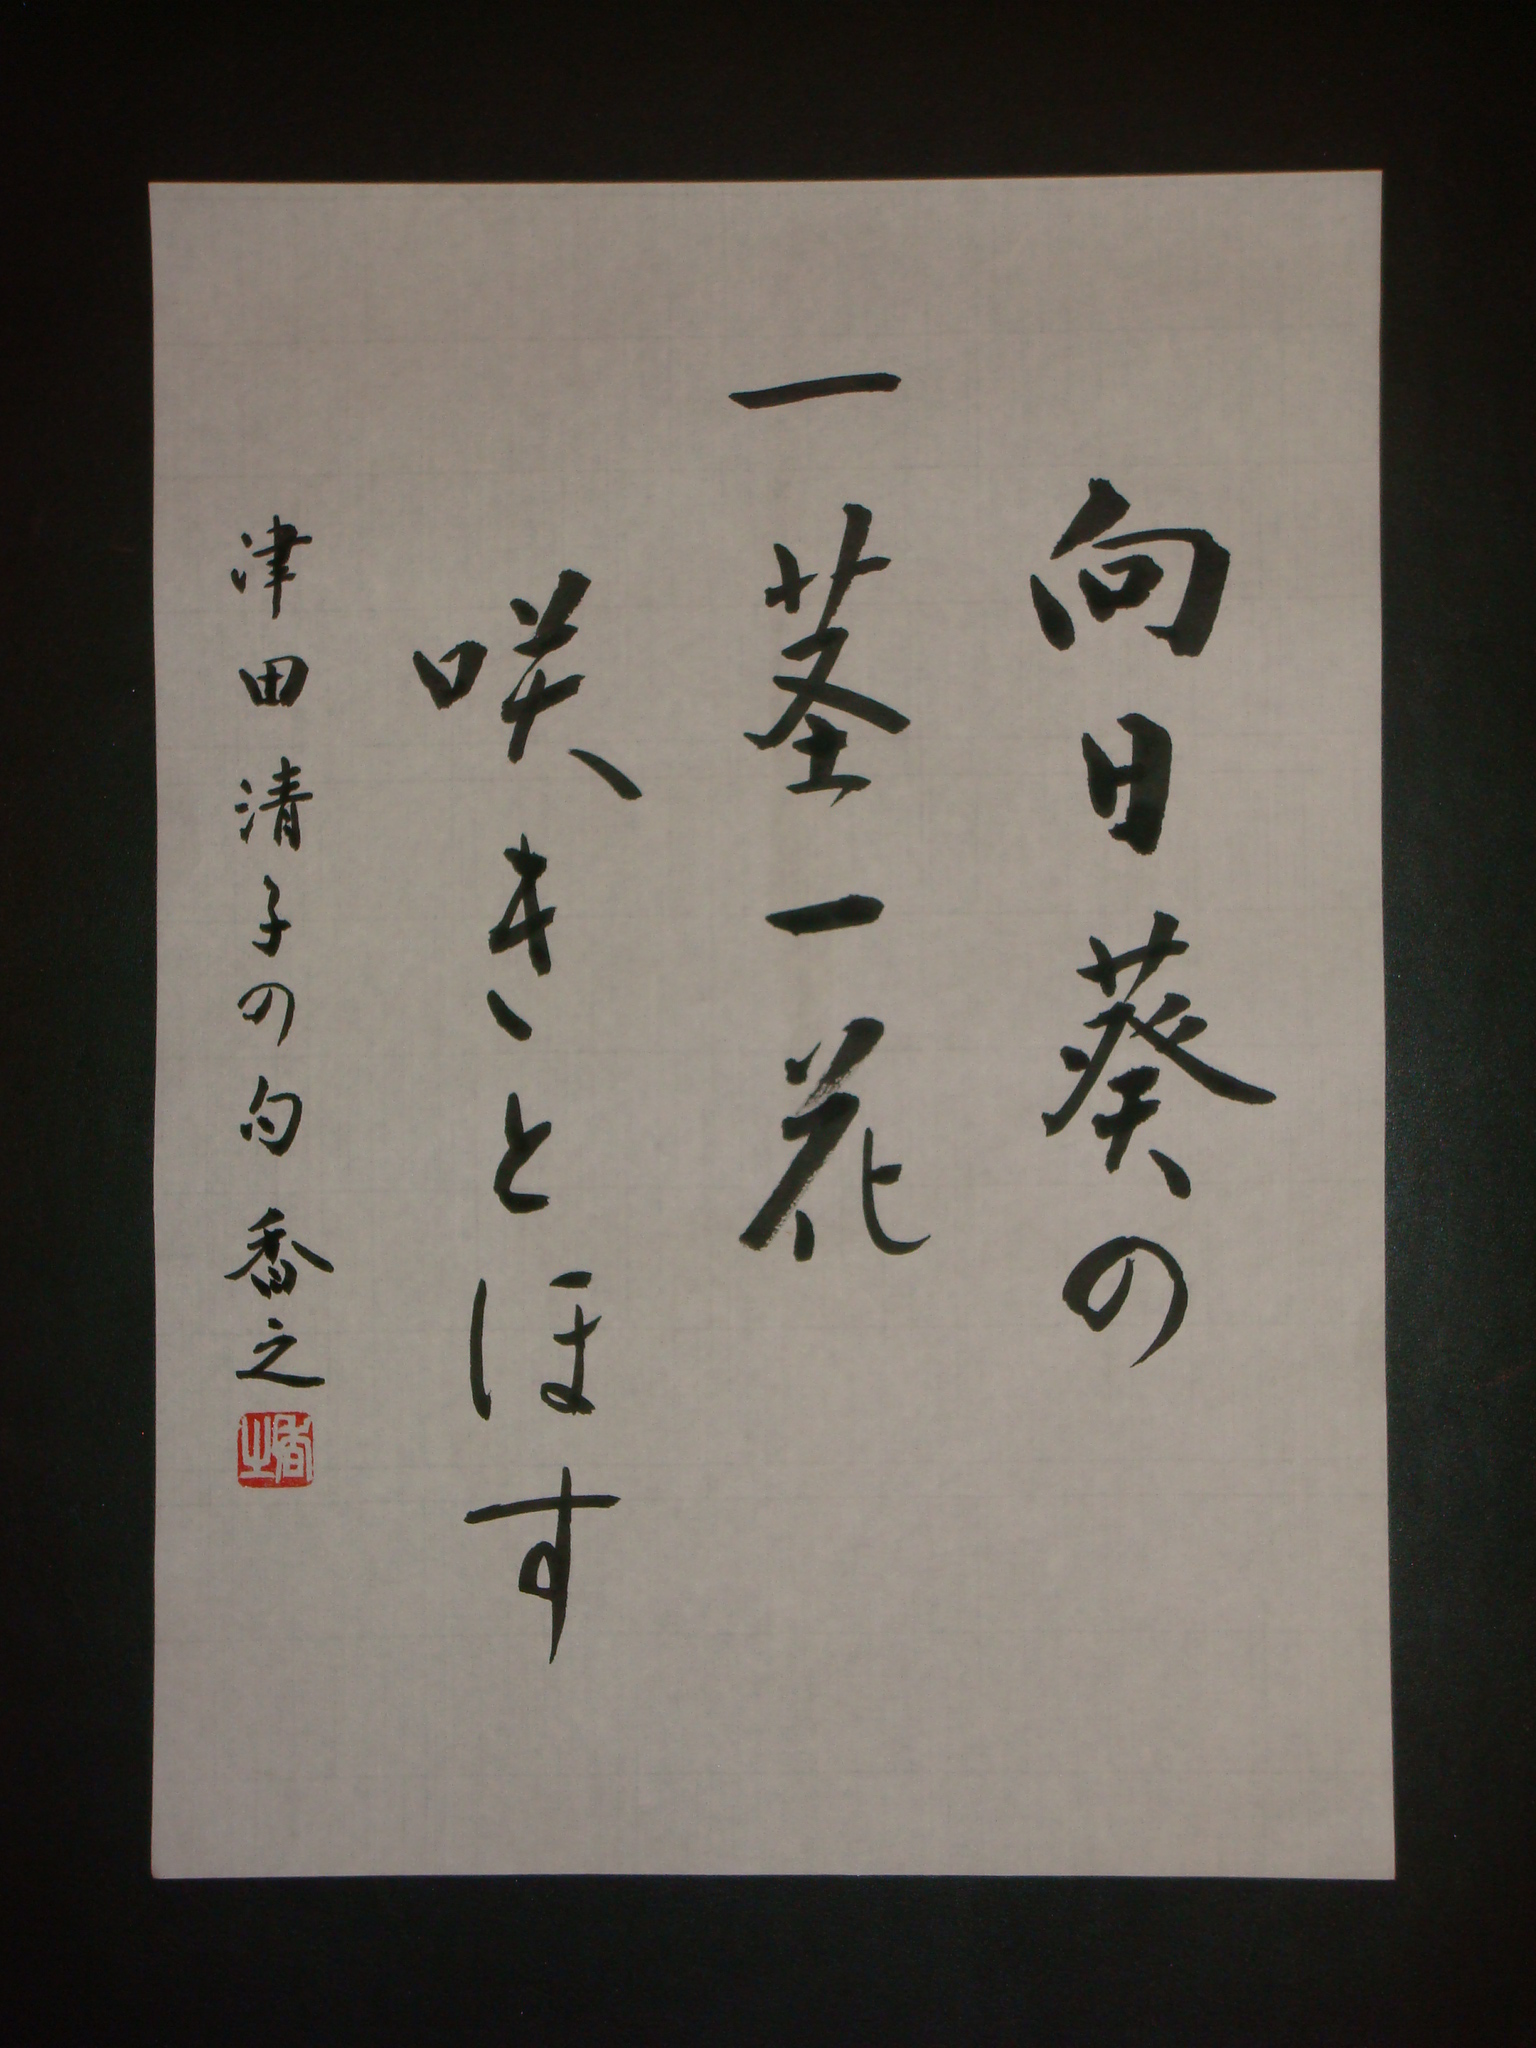 向日葵の
一茎一花
咲きとほす
津田清子の句 香之
香之